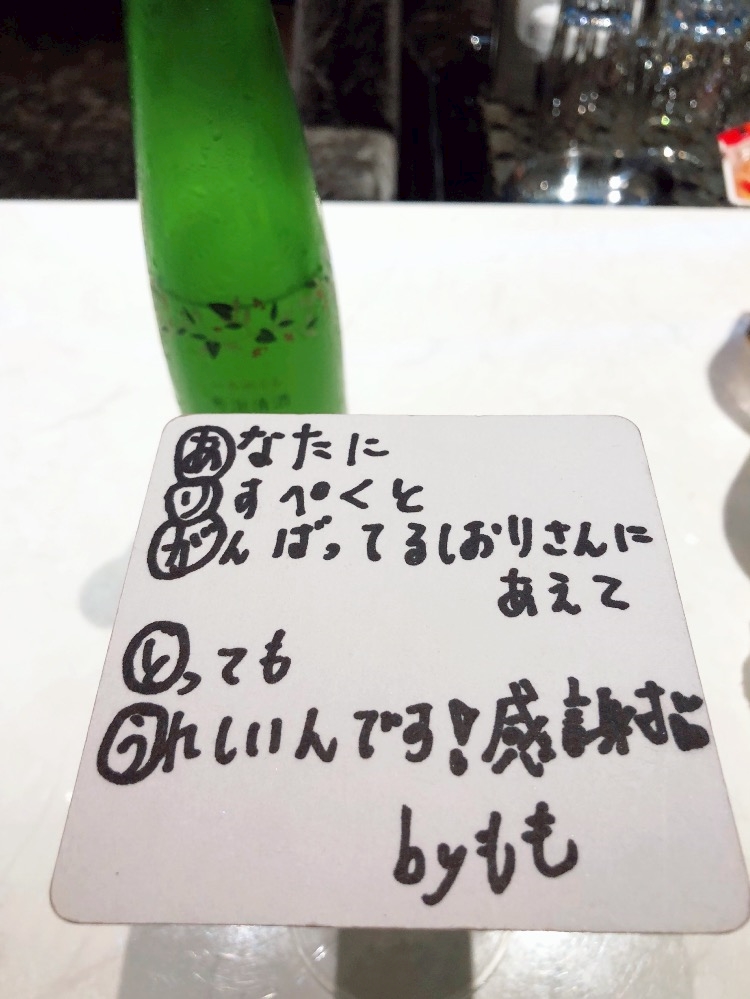 あなたに
りすぺくと
がんばってるしおりさんに
あえて
とっても
うれしいんです!感謝す
byもも